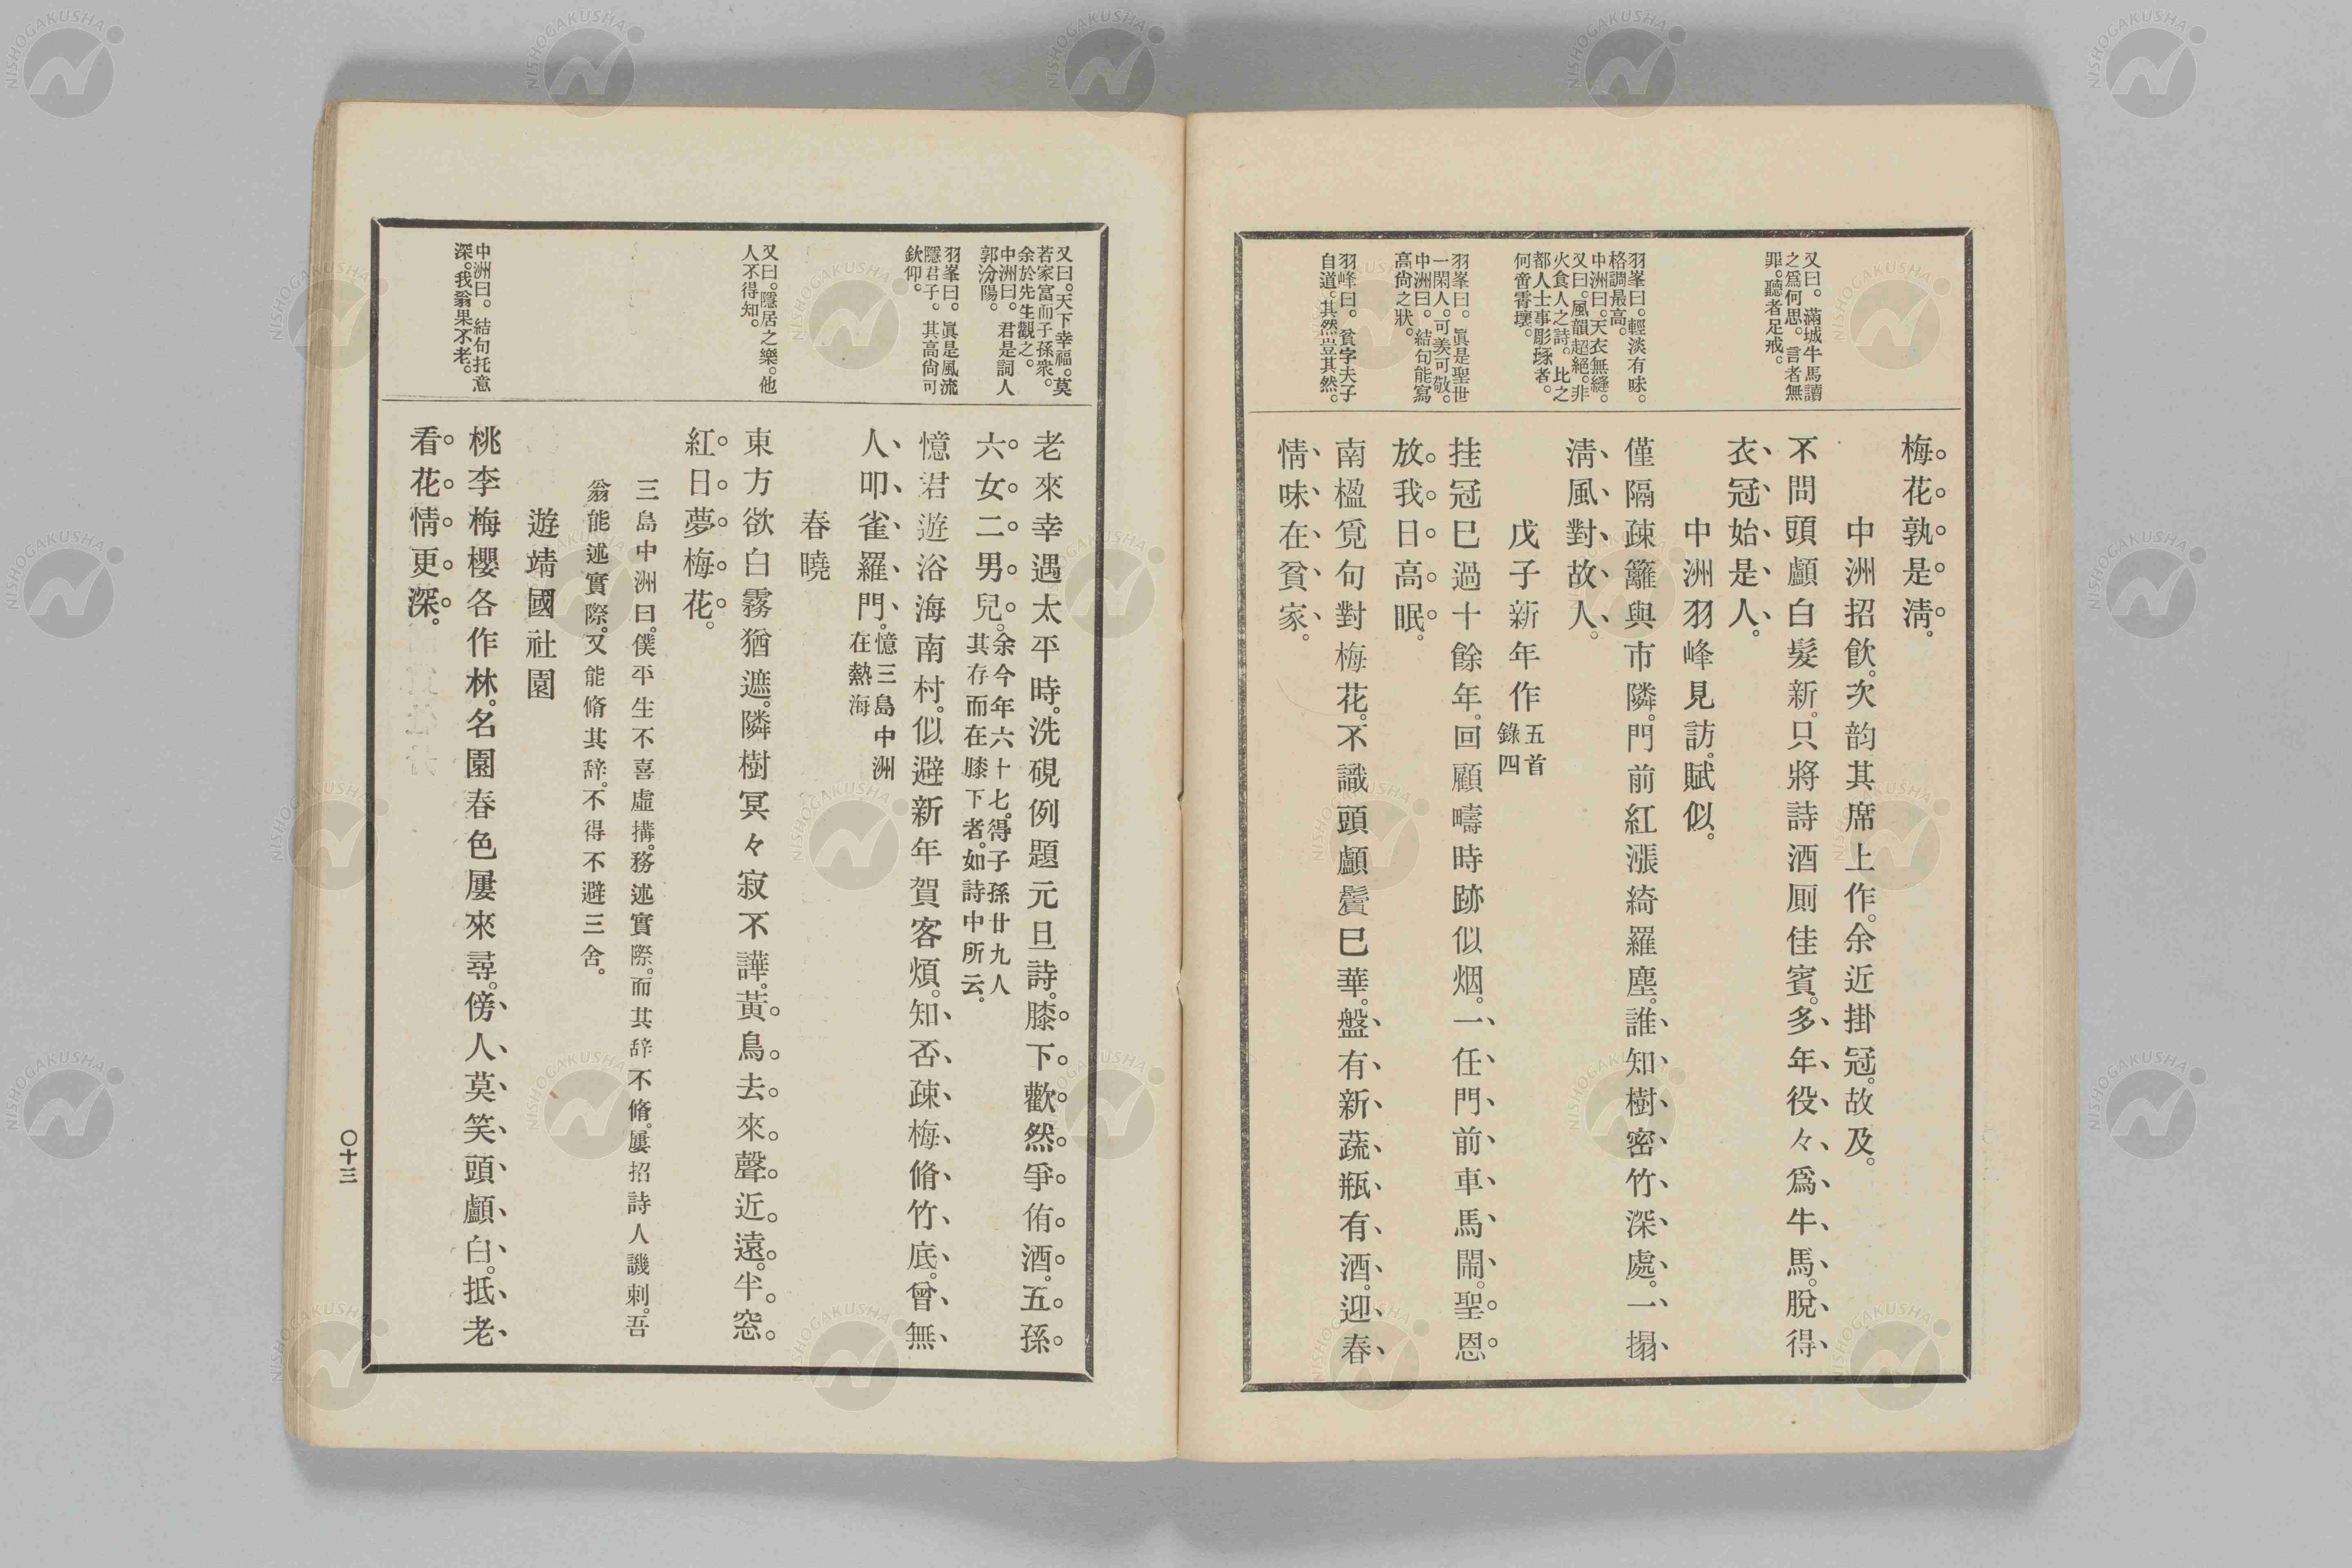 又曰。滿城牛馬讀
之爲何思。言者無
罪。聽者足戒。
羽峯曰。輕淡有味。
格調最高。
中洲曰。天衣無縫。
又曰。風韻超絕。非
火食人之詩。比之
都人士事彫琢者。
何啻霄壤。
羽峯曰。眞是聖世
一閑人。可羨可敬。
中洲曰。結句能寫
高尙之狀。
羽峰曰。貧字夫子
自道。其然豈其然。
梅花孰是淸。
中洲招飮。次韵其席上作。余近掛冠。故及。
不問頭顱白髮新。只將詩酒厠佳賓。多年役々爲牛馬。脫得
衣冠始是人。
中洲羽峰見訪。賦似。
僅隔疎籬與市隣。門前紅漲綺羅塵。誰知樹密竹深處。一搨
淸風對故人。
戊子新年作 五首
錄四
挂冠巳過十餘年。回顧疇時跡似烟。一任門前車馬鬧。聖恩
放我日高眠。
南楹覓句對梅花。不識頭顱鬢巳華。盤有新蔬瓶有酒。迎春
情味在貧家。
又曰。天下幸福。莫
若家富而子孫衆。
余於先生觀之。
中洲曰。君是詞人
郭汾陽。
羽峯曰。眞是風流
隱君子。其高尙可
欽仰。
又曰。隱居之樂。他
人不得知。
中洲曰。結句托意
深。我翁果不老。
老來幸遇太平時。洗硯例題元旦詩。膝下歡然爭侑酒。五孫
六女二男兒。余今年六十七。得子孫廿九人
其存而在膝下者。如詩中所云。
憶君遊浴海南村。似避新年賀客煩。知否疎梅脩竹底。曾無
人叩雀羅門。憶三島中洲
在熱海
春曉
東方欲白霧猶遮。隣樹冥々寂不譁。黃鳥去來聲近遠。半窓
紅日夢梅花。
三島中洲曰。僕平生不喜虛搆。務述實際。而其辞不脩。屢招詩人譏刺。吾
翁能述實際。又能脩其辞。不得不避三舍。
遊靖國社園
桃李梅櫻各作林。名園春色屢來尋。傍人莫笑頭顱白。抵老
看花情更深。
〇十三